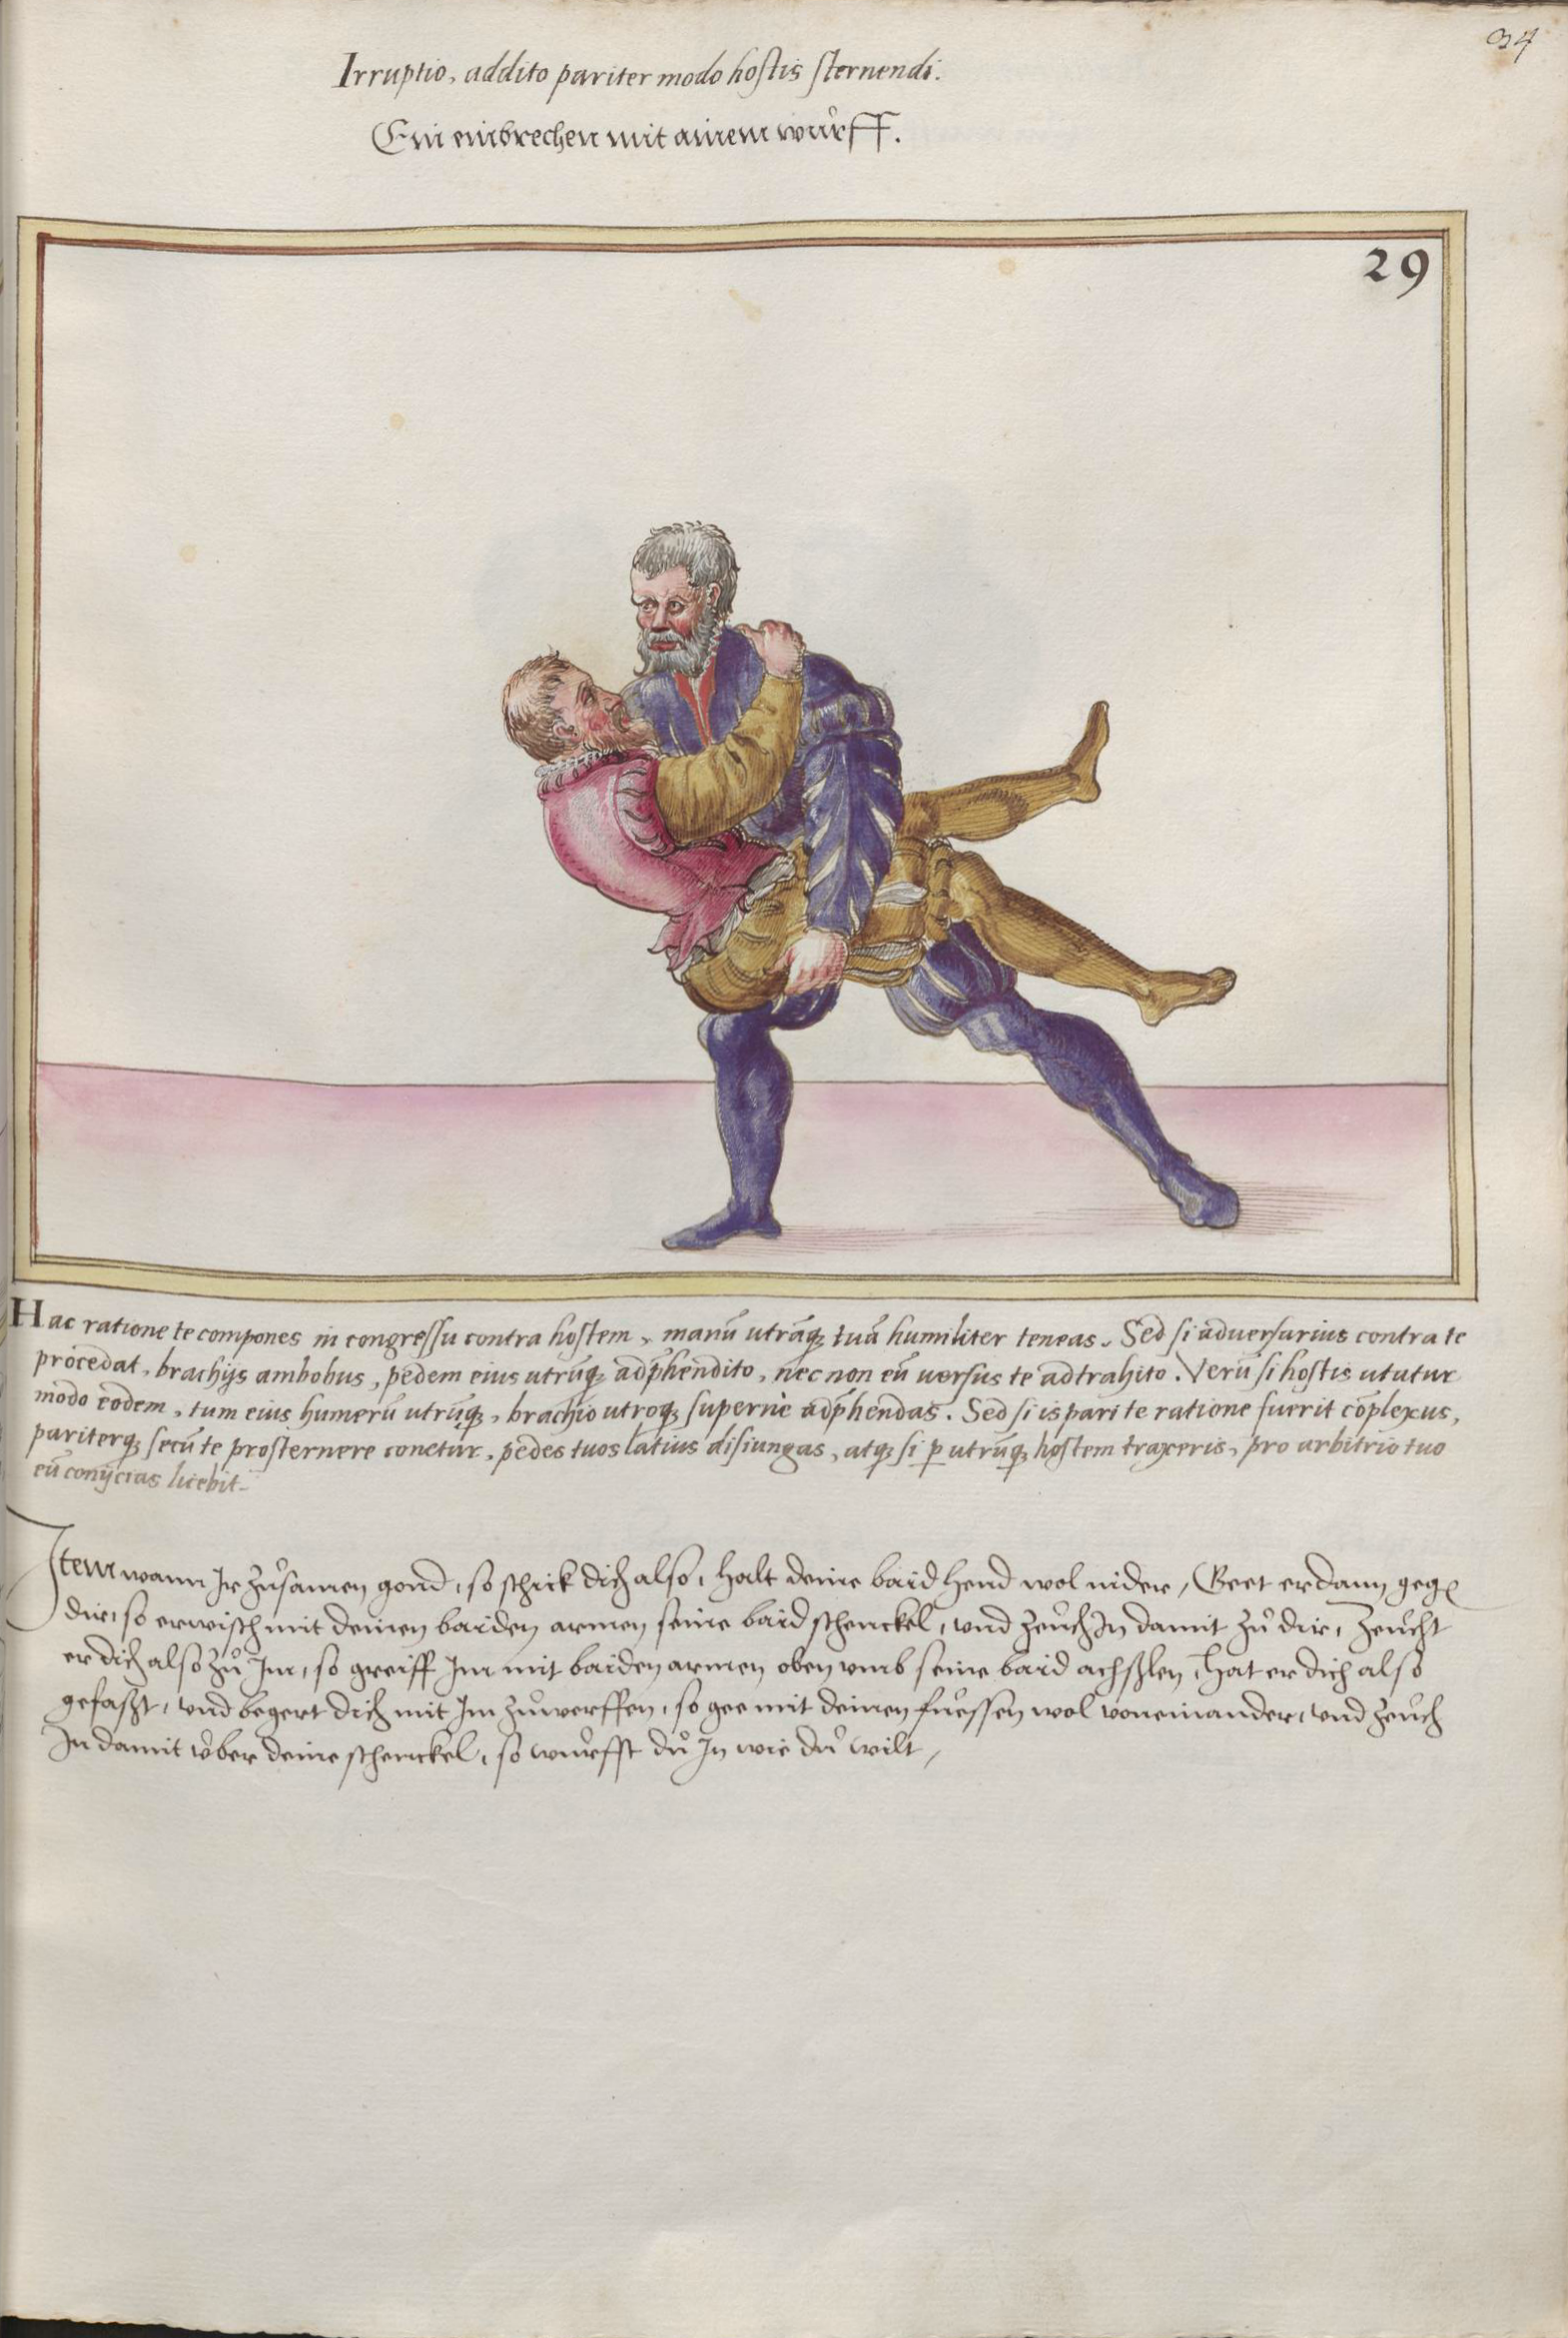 34
Irruptio, addito pariter modo hostis sternendi.
Ein einbrechen mit ainem wůrff.
29
Hac ratione te compones in congressu contra hostem, manū utrāq; tuā humiliter teneas. Sed si aduersarius contra te
procedat, brachijs ambobus, pedem eius utrūq; adp̄hendito, nec non eū uersus te adtrahito. Verū si hostis utatur
modo eodem, tum eius humerū utrūq;, brachio utroq; supernè adp̄hendas. Sed si is pari te ratione fuerit cōplexus,
pariterq; secū te prosternere conetur, pedes tuos latius disiungas, atq; si p̱ utrūq; hostem traxeris, pro arbitrio tuo
eū conijcias licebit.
Item wann Ir zůsamen gond, so schick dich also, halt deine baid hend wol nider, Geet er dann geg̃
dir, so erwisch mit deinen baiden armen seine baid schenckel, und zeuch In damit zů dir, Zeucht
er dich also zů Im, so greiff Im mit baiden armen oben umb seine baid achsslen, hat er dich also
gefaszt, und begert dich mit Im zůwerffen, so gee mit deinen fuessen wol voneinander, und zeuch
In damit über deine schenckel, so wurffst du In wie du wilt,